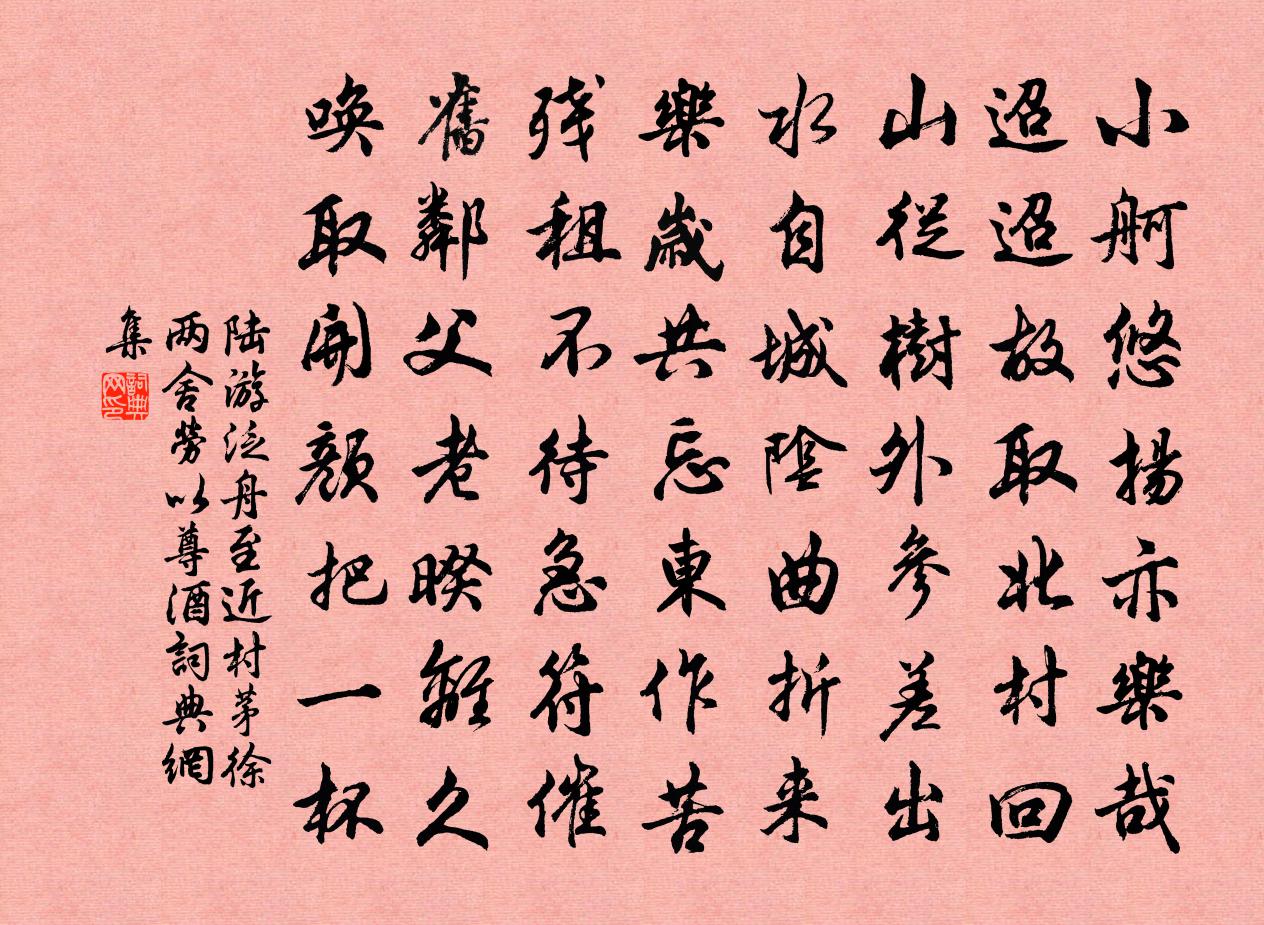 小舸悠揚亦樂哉
迢迢故取北村回
山從樹外參差出
水自城陰曲折来
樂歲共忘東作苦
残租不待急符催
舊鄰父老暌離久
喚取開顏把一杯
陸游泛舟至近村茅徐
两舍勞以尊酒詞典網
集
詞典
网印